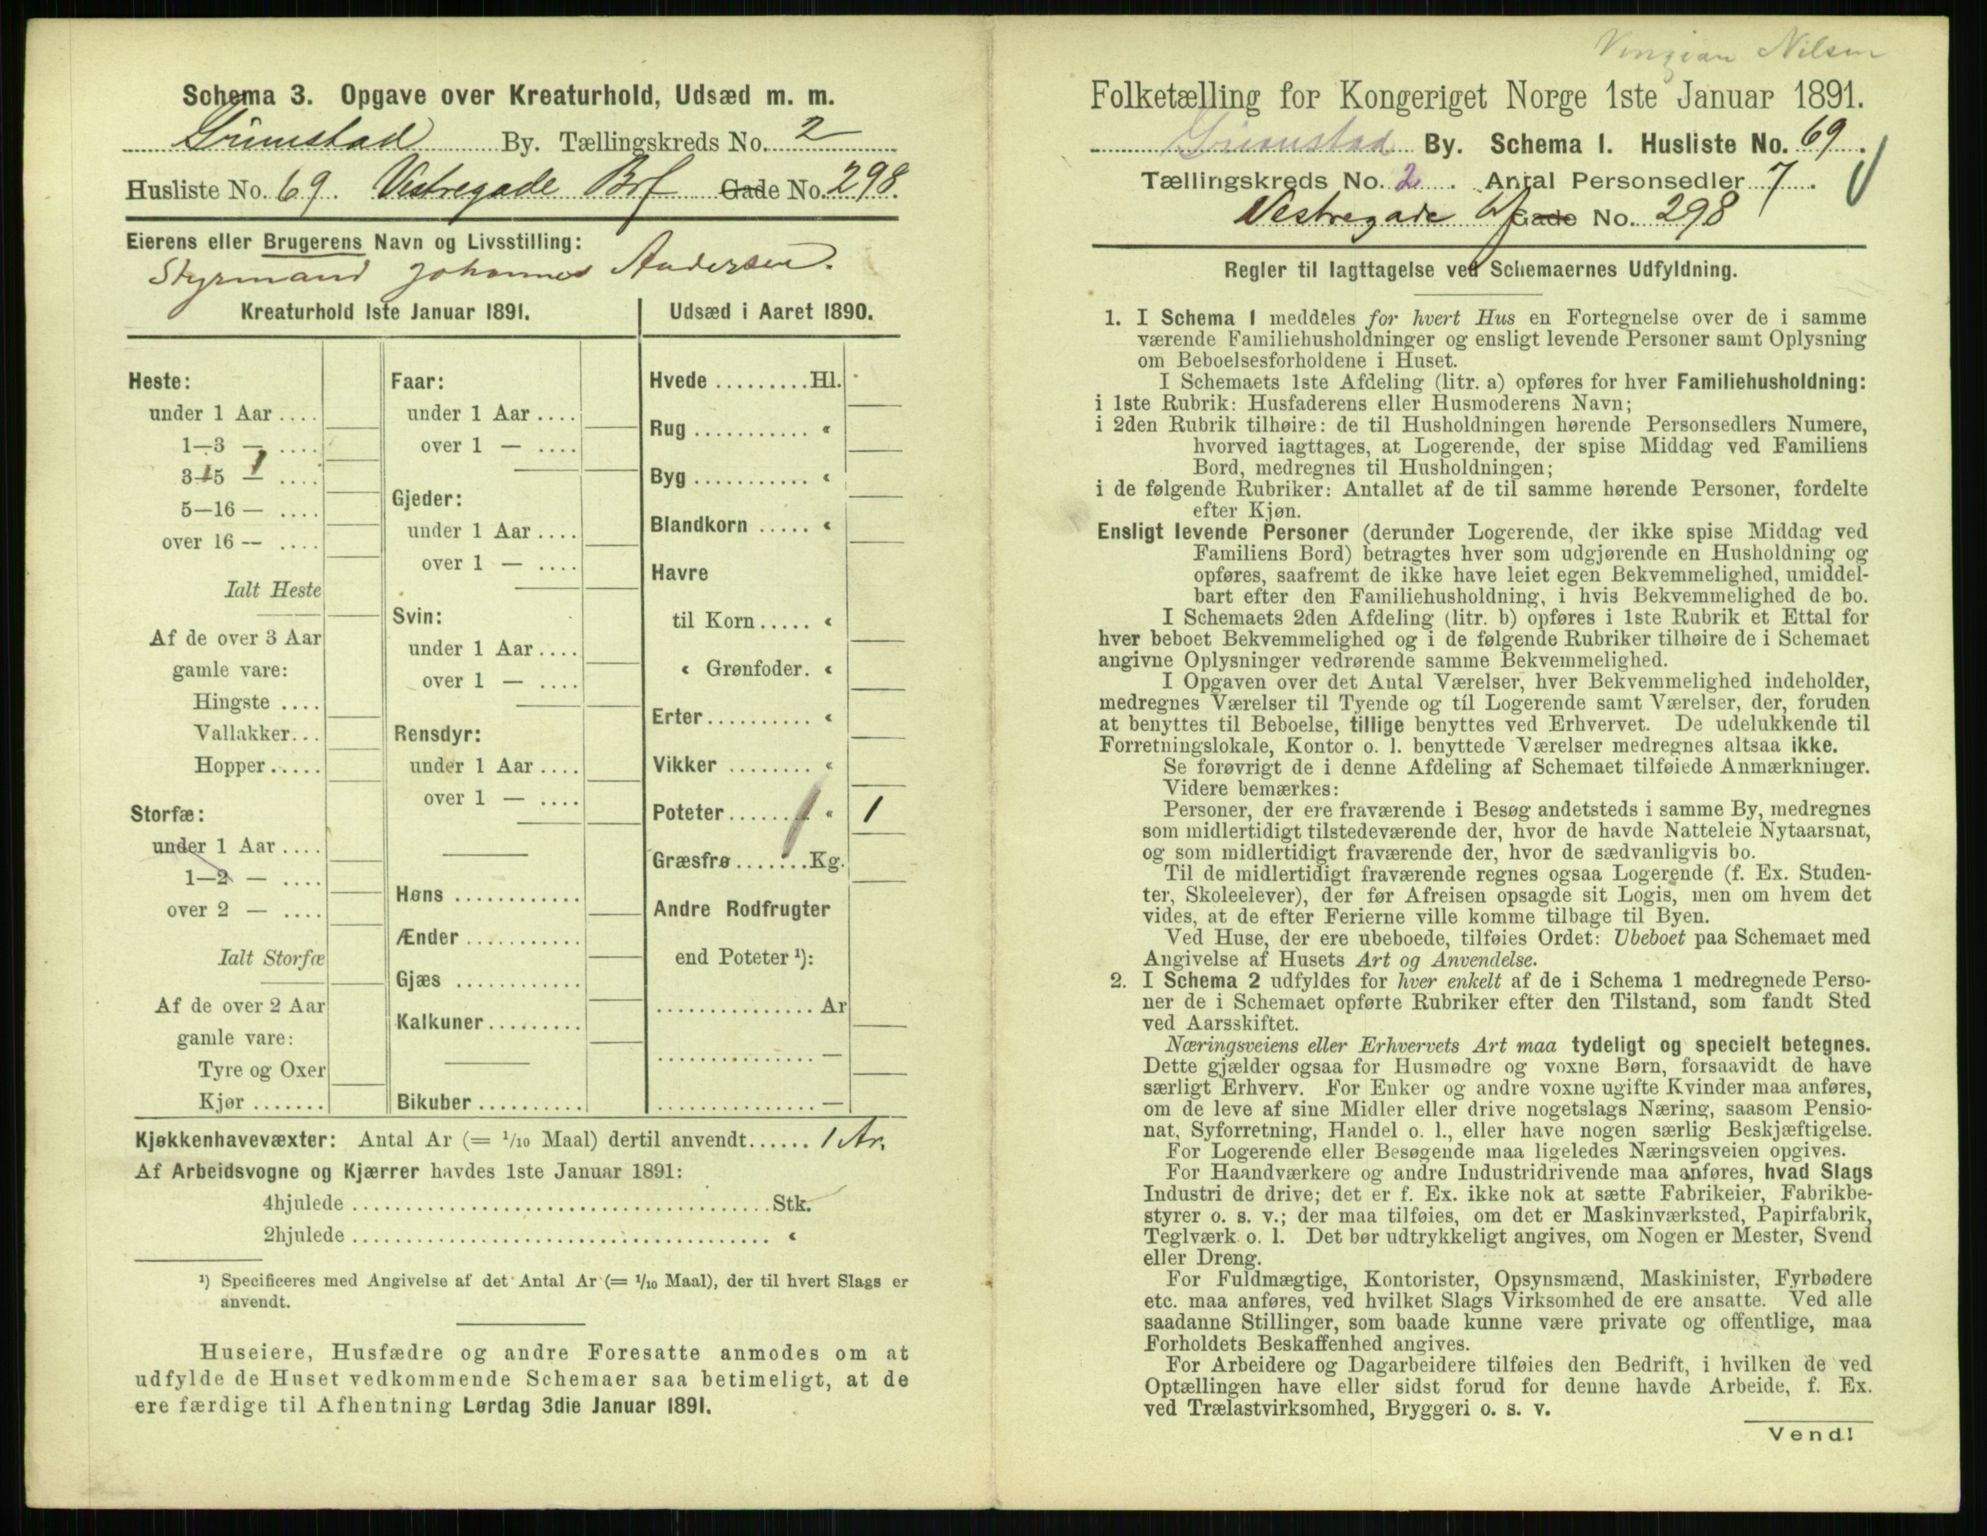 Schema 3. Opgave over Kreaturhold, Udsæd m. m.
Grimstad By. Tællingskreds No. 2
Husliste No. 69. Vestregade Brf Gade No. 298.
Eierens eller Brugerens Navn og Livsstilling:
Styrmand Johannes Andersen.
Kreaturhold 1ste Januar 1891.
Heste:
under 1 Aar ....
1—3 — ....
3—5 — ....
5—16 — ....
over 16 — ....
Ialt Heste
Af de over 3 Aar
gamle vare:
Hingste ....
Vallakker...
Hopper.....
Storfæ:
under 1 Aar ....
1—2 — ....
over 2 — ....
Ialt Storfæ
Af de over 2 Aar
gamle vare:
Tyre og Oxer
Kjør .......
Faar:
under 1 Aar ....
over 1 — ....
Gjeder:
under 1 Aar ....
over 1 — ....
Svin:
under 1 Aar ....
over 1 — ....
Rensdyr:
under 1 Aar ....
over 1 — ....
Høns ............
Ænder ...........
Gjæs ............
Kalkuner.........
Bikuber ..........
Udsæd i Aaret 1890.
Hvede .........Hl.
Rug ........... «
Byg ........... «
Blandkorn ..... «
Havre
til Korn..... «
« Grønfoder. «
Erter.......... «
Vikker ........ «
Poteter ....... « 1
Græsfrø .......Kg.
Andre Rodfrugter
end Poteter ¹):
............... Ar
............... —
............... —
Kjøkkenhavevæxter: Antal Ar (= 1/10 Maal) dertil anvendt...... 1 Ar.
Af Arbeidsvogne og Kjærrer havdes 1ste Januar 1891:
4hjulede ....................................... Stk.
2hjulede ....................................... «
¹) Specificeres med Angivelse af det Antal Ar (= 1/10 Maal), der til hvert Slags er
anvendt.
Huseiere, Husfædre og andre Foresatte anmodes om at
udfylde de Huset vedkommende Schemaer saa betimeligt, at de
ere færdige til Afhentning Lørdag 3die Januar 1891.
Nilsen
Folketælling for Kongeriget Norge 1ste Januar 1891.
Grimstad By. Schema 1. Husliste No. 69.
Tællingskreds No. 2. Antal Personsedler 7.
Vestregade Gade No. 298
Regler til Iagttagelse ved Schemaernes Udfyldning.
1. I Schema 1 meddeles for hvert Hus en Fortegnelse over de i samme
værende Familiehusholdninger og ensligt levende Personer samt Oplysning
om Beboelsesforholdene i Huset.
I Schemaets 1ste Afdeling (litr. a) opføres for hver Familiehusholdning:
i 1ste Rubrik: Husfaderens eller Husmoderens Navn;
i 2den Rubrik tilhøire: de til Husholdningen hørende Personsedlers Numere,
hvorved iagttages, at Logerende, der spise Middag ved Familiens
Bord, medregnes til Husholdningen;
i de følgende Rubriker: Antallet af de til samme hørende Personer, fordelte
efter Kjøn.
Ensligt levende Personer (derunder Logerende, der ikke spise Middag ved
Familiens Bord) betragtes hver som udgjørende en Husholdning og
opføres, saafremt de ikke have leiet egen Bekvemmelighed, umiddel-
bart efter den Familiehusholdning, i hvis Bekvemmelighed de bo.
I Schemaets 2den Afdeling (litr. b) opføres i 1ste Rubrik et Ettal for
hver beboet Bekvemmelighed og i de følgende Rubriker tilhøire de i Schemaet
angivne Oplysninger vedrørende samme Bekvemmelighed.
I Opgaven over det Antal Værelser, hver Bekvemmelighed indeholder,
medregnes Værelser til Tyende og til Logerende samt Værelser, der, foruden
at benyttes til Beboelse, tillige benyttes ved Erhvervet. De udelukkende til
Forretningslokale, Kontor o. l. benyttede Værelser medregnes altsaa ikke.
Se forøvrigt de i denne Afdeling af Schemaet tilføiede Anmærkninger.
Videre bemærkes:
Personer, der ere fraværende i Besøg andetsteds i samme By, medregnes
som midlertidigt tilstedeværende der, hvor de havde Natteleie Nytaarsnat,
og som midlertidigt fraværende der, hvor de sædvanligvis bo.
Til de midlertidigt fraværende regnes ogsaa Logerende (f. Ex. Studen-
ter, Skoleelever), der før Afreisen opsagde sit Logis, men om hvem det
vides, at de efter Ferierne ville komme tilbage til Byen.
Ved Huse, der ere ubeboede, tilføies Ordet: Ubeboet paa Schemaet med
Angivelse af Husets Art og Anvendelse.
2. I Schema 2 udfyldes for hver enkelt af de i Schema 1 medregnede Perso-
ner de i Schemaet opførte Rubriker efter den Tilstand, som fandt Sted
ved Aarsskiftet.
Næringsveiens eller Erhvervets Art maa tydeligt og specielt betegnes.
Dette gjælder ogsaa for Husmødre og voxne Børn, forsaavidt de have
særligt Erhverv. For Enker og andre voxne ugifte Kvinder maa anføres,
om de leve af sine Midler eller drive nogetslags Næring, saasom Pensio-
nat, Syforretning, Handel o. l., eller have nogen særlig Beskjæftigelse.
For Logerende eller Besøgende maa ligeledes Næringsveien opgives.
For Haandværkere og andre Industridrivende maa anføres, hvad Slags
Industri de drive; det er f. Ex. ikke nok at sætte Fabrikeier, Fabrikbe-
styrer o. s. v.; der maa tilføies, om det er Maskinværksted, Papirfabrik,
Teglværk o. l. Det bør udtrykkeligt angives, om Nogen er Mester, Svend
eller Dreng.
For Fuldmægtige, Kontorister, Opsynsmænd, Maskinister, Fyrbødere
etc. maa anføres, ved hvilket Slags Virksomhed de ere ansatte. Ved alle
saadanne Stillinger, som baade kunne være private og offentlige, maa
Forholdets Beskaffenhed angives.
For Arbeidere og Dagarbeidere tilføies den Bedrift, i hvilken de ved
Optællingen have eller sidst forud for denne havde Arbeide, f. Ex.
ved Trælastvirksomhed, Bryggeri o. s. v.
Vend!